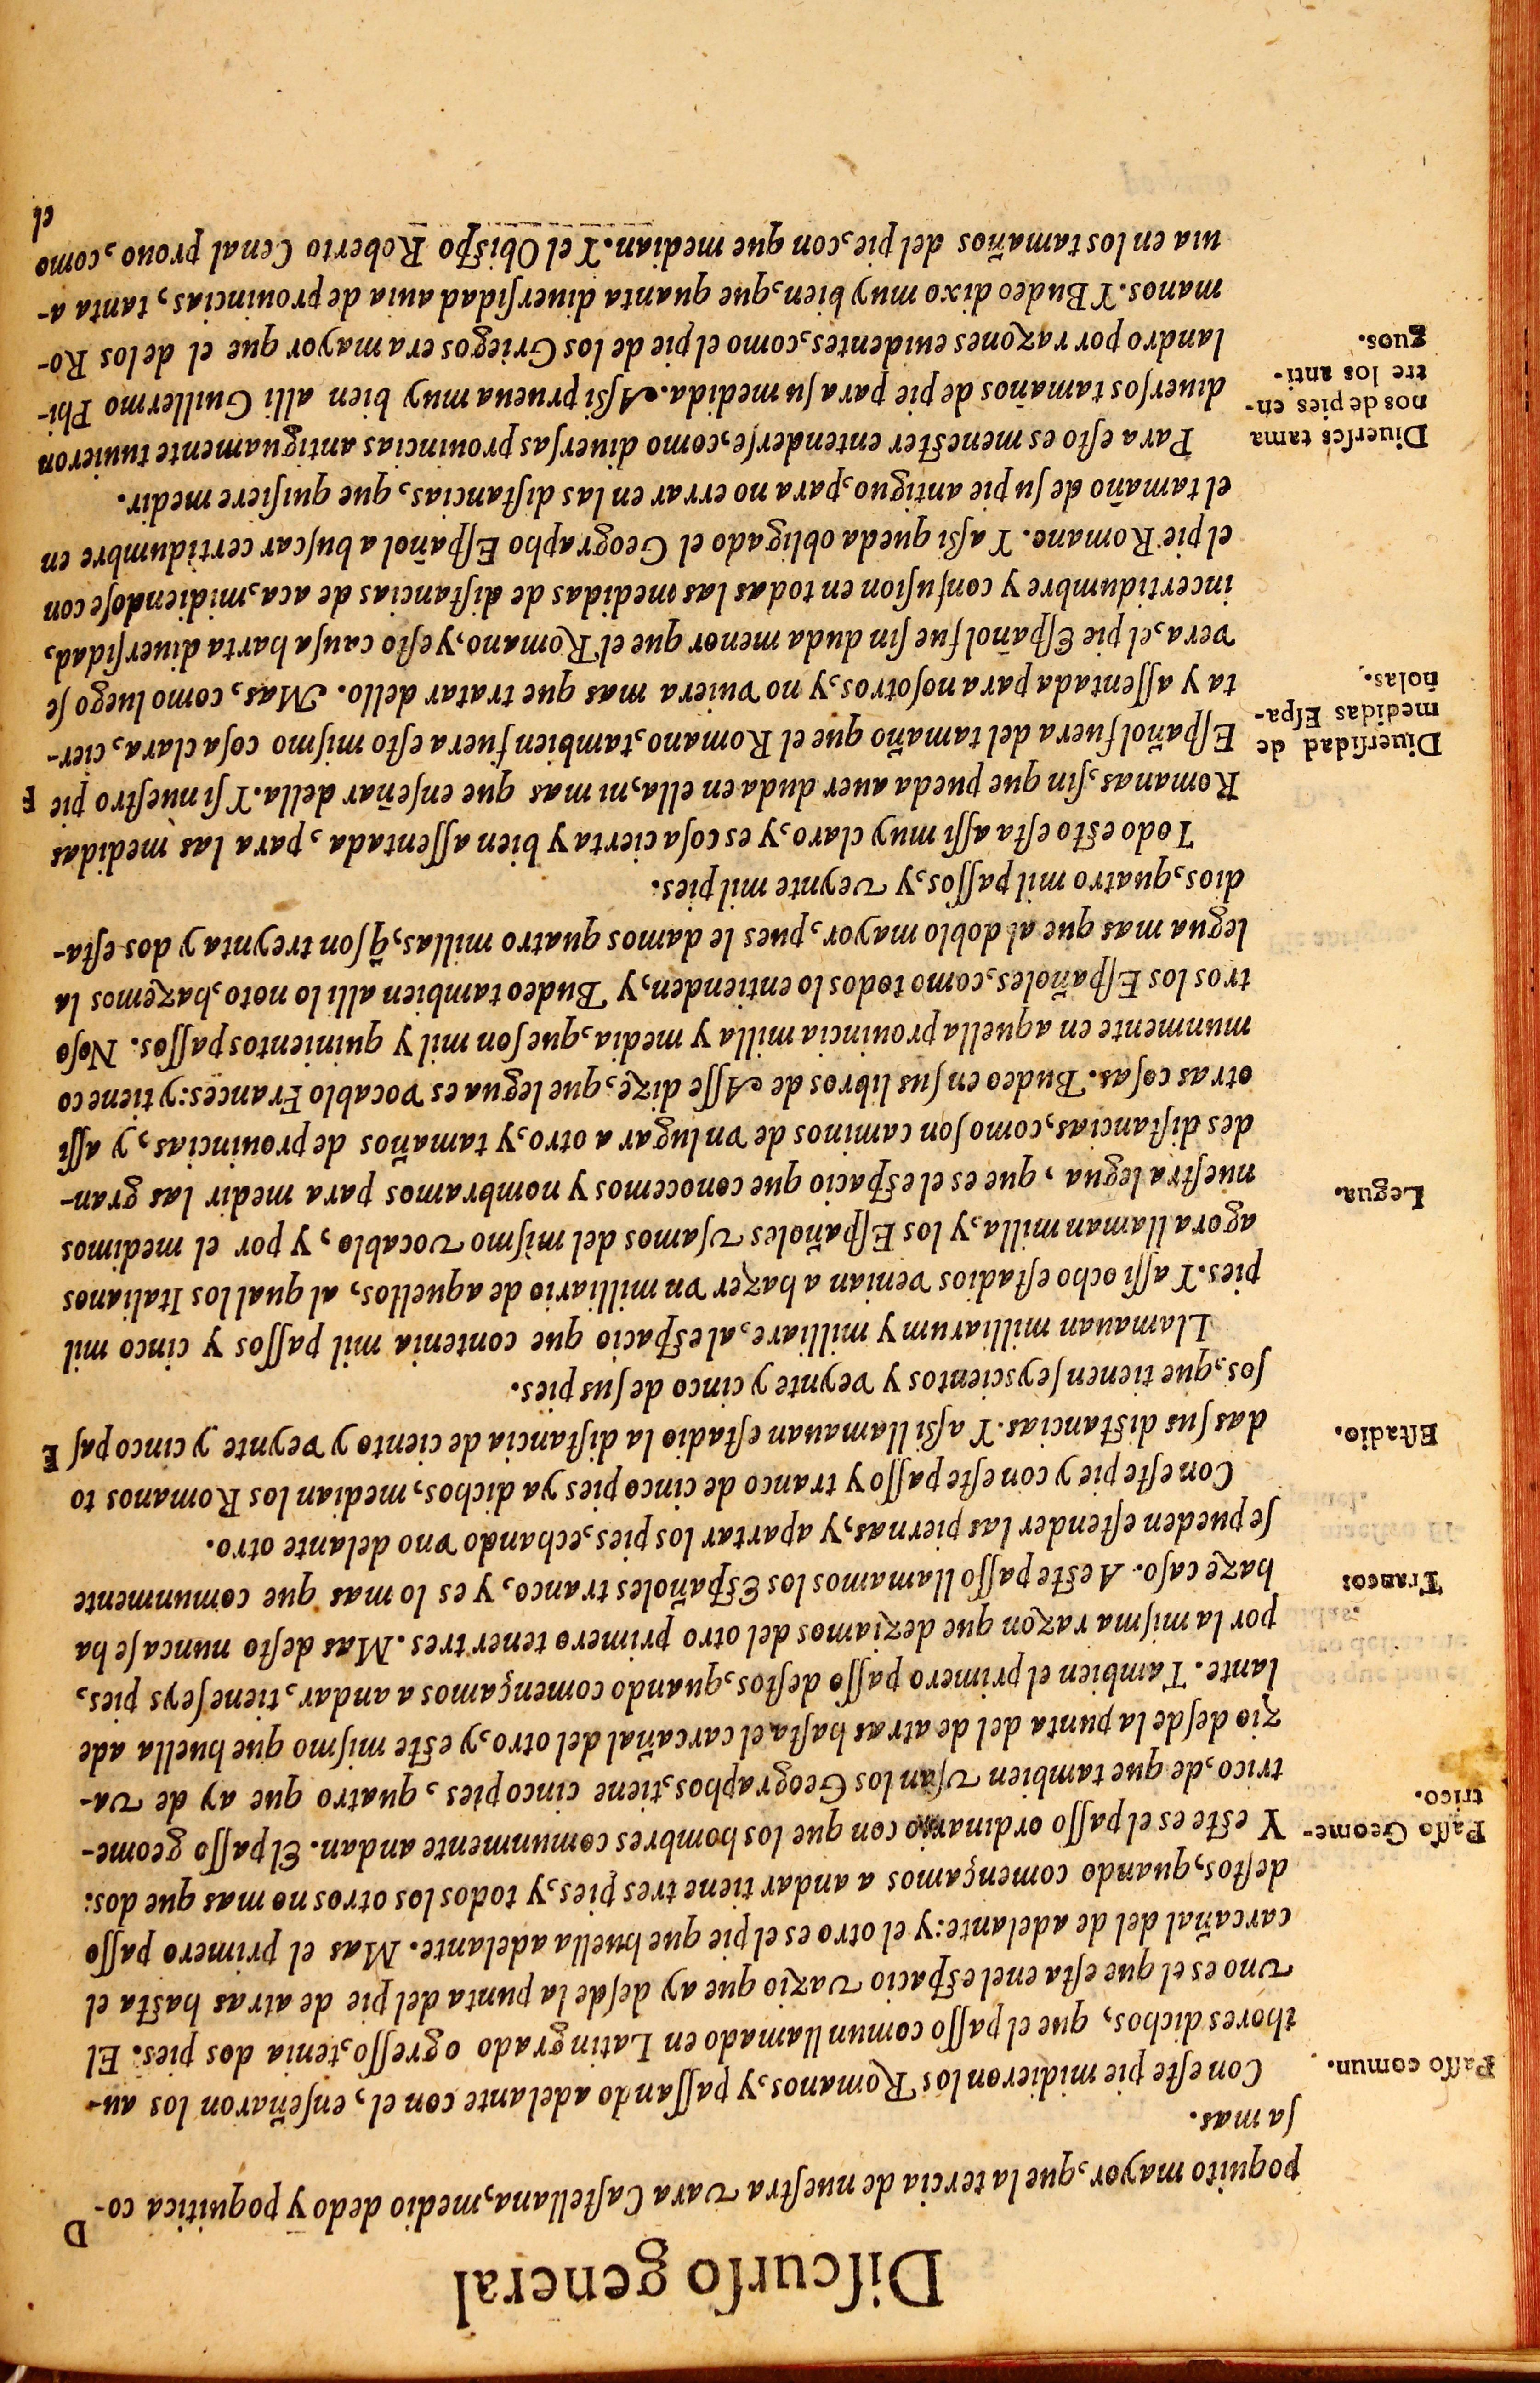 Diſcurſo general
D
poquito mayor, que la tercia de nueſtra vara Caſtellana, medio dedo y poquitica co-
ſa mas.
Paſſo comun.
Con eſte pie midieron los Romanos, y paſſando adelante con el, enſeñaron los au-
thores dichos, que el paſſo comun llamado en Latin grado o greſſo, tenia dos pies. El
vno es el que eſta en el eſpacio vazio que ay deſde la punta del pie de atras haſta el
carcañal del de adelante: y el otro es el pie que huella adelante. Mas el primero paſſo
deſtos, quando començamos a andar tiene tres pies, y todos los otros no mas que dos:
Paſſo Geome-
trico.
Y eſte es el paſſo ordinario con que los hombres comunmente andan. El paſſo geome-
trico, de que tambien vſan los Geographos, tiene cinco pies, quatro que ay de va-
zio deſde la punta del de atras haſta el carcañal del otro, y eſte miſmo que huella ade
lante. Tambien el primero paſſo deſtos, quando començamos a andar, tiene ſeys pies,
por la miſma razon que deziamos del otro primero tener tres. Mas deſto nunca ſe ha
Tranco:
haze caſo. A eſte paſſo llamamos los Eſpañoles tranco, y es lo mas que comunmente
ſe pueden eſtender las piernas, y apartar los pies, echando vno delante otro.
Con eſte pie y con eſte paſſo y tranco de cinco pies ya dichos, median los Romanos to
Eſtadio.
das ſus diſtancias. Y aſsi llamauan eſtadio la diſtancia de ciento y veynte y cinco paſ
E
ſos, que tienen ſeyscientos y veynte y cinco de ſus pies.
Llamauan milliarum y milliare, al eſpacio que contenia mil paſſos y cinco mil
pies. Y aſſi ocho eſtadios venian a hazer vn milliario de aquellos, al qual los Italianos
agora llaman milla, y los Eſpañoles vſamos del miſmo vocablo, y por el medimos
Legua.
nueſtra legua, que es el eſpacio que conocemos y nombramos para medir las gran-
des diſtancias, como ſon caminos de vn lugar a otro, y tamaños de prouincias, y aſſi
otras coſas. Budeo en ſus libros de Aſſe dize, que legua es vocablo Frances: y tiene co
munmente en aquella prouincia milla y media, que ſon mil y quinientos paſſos. Noſo
tros los Eſpañoles, como todos lo entienden, y Budeo tambien alli lo noto, hazemos la
legua mas que al doblo mayor, pues le damos quatro millas, q̃ ſon treynta y dos eſta-
dios, quatro mil paſſos, y veynte mil pies.
Todo eſto eſta aſſi muy claro, y es coſa cierta y bien aſſentada, para las medidas
Romanas, ſin que pueda auer duda en ella, ni mas que enſeñar della. Y ſi nueſtro pie
F
Diuerſidad de
medidas Eſpa-
ñolas.
Eſpañol fuera del tamaño que el Romano, tambien fuera eſto miſmo coſa clara, cier-
ta y aſſentada para noſotros, y no vuiera mas que tratar dello. Mas, como luego ſe
vera, el pie Eſpañol fue ſin duda menor que el Romano, y eſto cauſa harta diuerſidad,
incertidumbre y confuſion en todas las medidas de diſtancias de aca, midiendoſe con
el pie Romano. Y aſsi queda obligado el Geographo Eſpañol a buſcar certidumbre en
el tamaño de ſu pie antiguo, para no errar en las diſtancias, que quiſiere medir.
Diuerſos tama
nos de pies en-
tre los anti-
guos.
Para eſto es meneſter entenderſe, como diuerſas prouincias antiguamente tuuieron
diuerſos tamaños de pie para ſu medida. Aſsi prueua muy bien alli Guillermo Phi-
landro por razones euidentes, como el pie de los Griegos era mayor que el de los Ro-
manos. Y Budeo dixo muy bien, que quanta diuerſidad auia de prouincias, tanta a-
uia en los tamaños del pie, con que median. Y el Obiſpo Roberto Cenal prouo, como
el